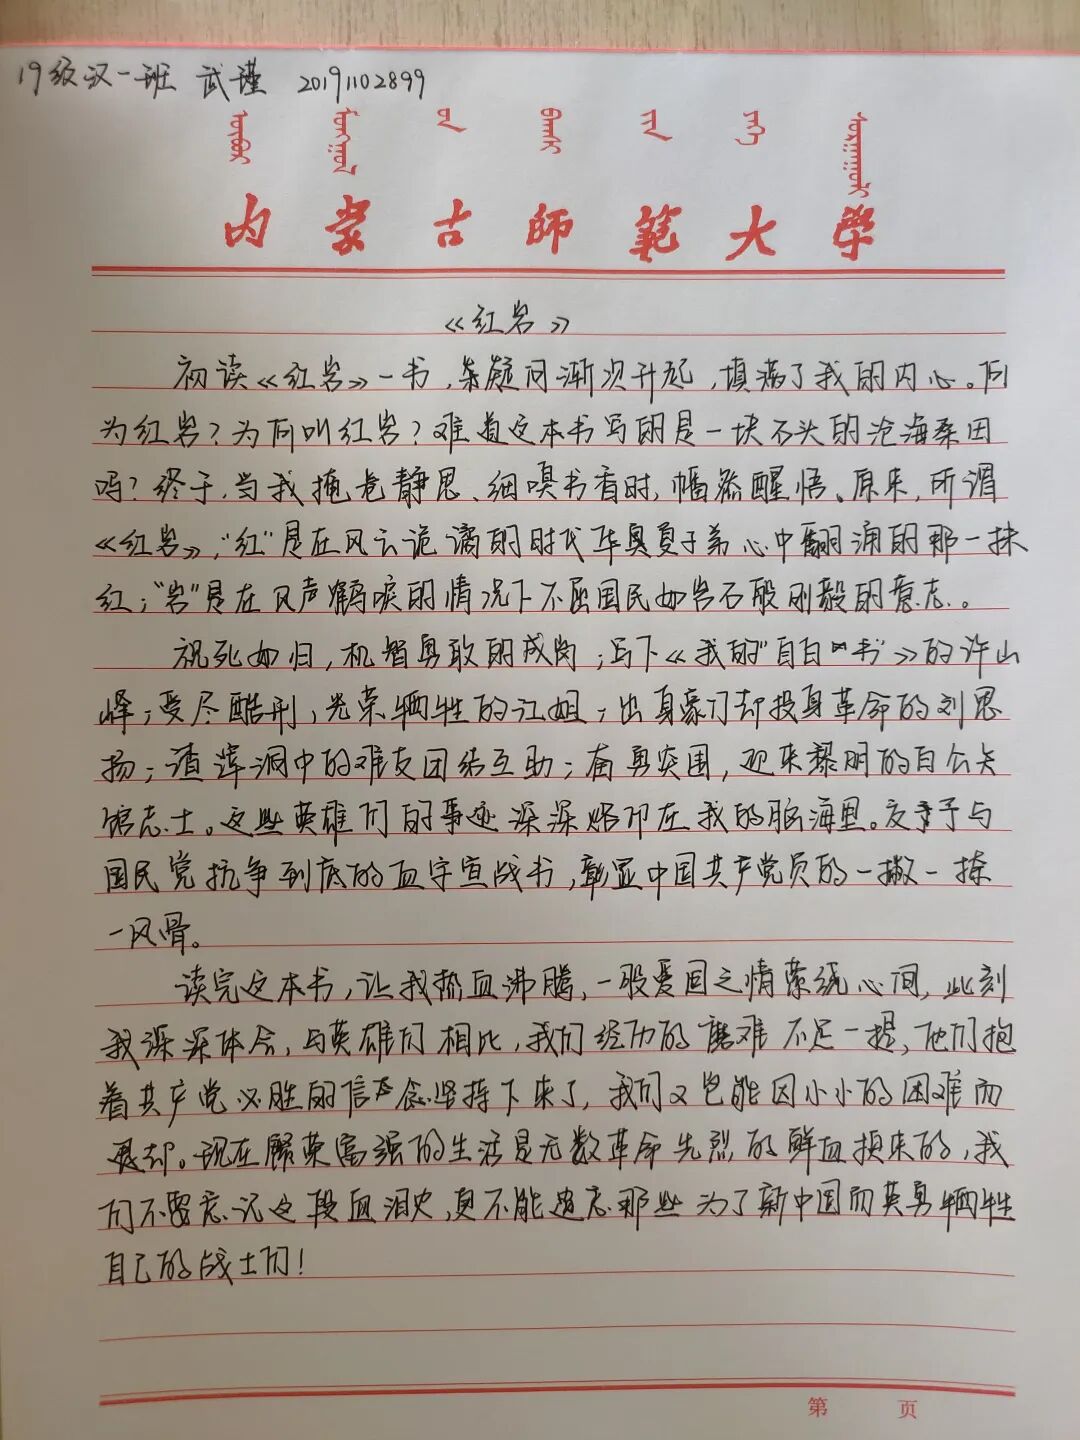 19级汉一班 武瑾 20191102899
内蒙古师范大学
《红岩》
初读《红岩》一书,条疑问渐次升起,填满了我的内心。何
为红岩?为何叫红岩?难道这本书写的是一块石头的沧海桑田
吗?终于,当我掩卷静思、细嗅书香时,幡然醒悟、原来,所谓
《红岩》,“红”是在风云诡谲的时代华夏子弟心中翻涌的那一抹
红;“岩”是在风声鹤唳的情况下不屈国民如岩石般刚毅的意志。
视死如归,机智勇敢的成岗;写下《我的“自白”书》的许山
峰;受尽酷刑,光荣牺牲的江姐;出身豪门却投身革命的刘思
扬;渣滓洞中的难友团结互助;奋勇突围,迎来黎明的白公
馆志士。这些英雄们的事迹深深烙印在我的脑海里。与
国民党抗争到底的血字宣战书,彰显中国共产党员的一撇一捺
一风骨。
读完这本书,让我热血沸腾,一股爱国之情萦绕心间,此刻
我深深体会,与英雄们相比,我们经历的磨难不足一提,他们抱
着共产党必胜的信念坚持下来了,我们又岂能因小小的困难而
退却。现在繁荣富强的生活是无数革命先烈的鲜血换来的,我
们不要忘记这段血泪史,更不能遗忘那些为了新中国而英勇牺牲
自己的战士们!
第 页